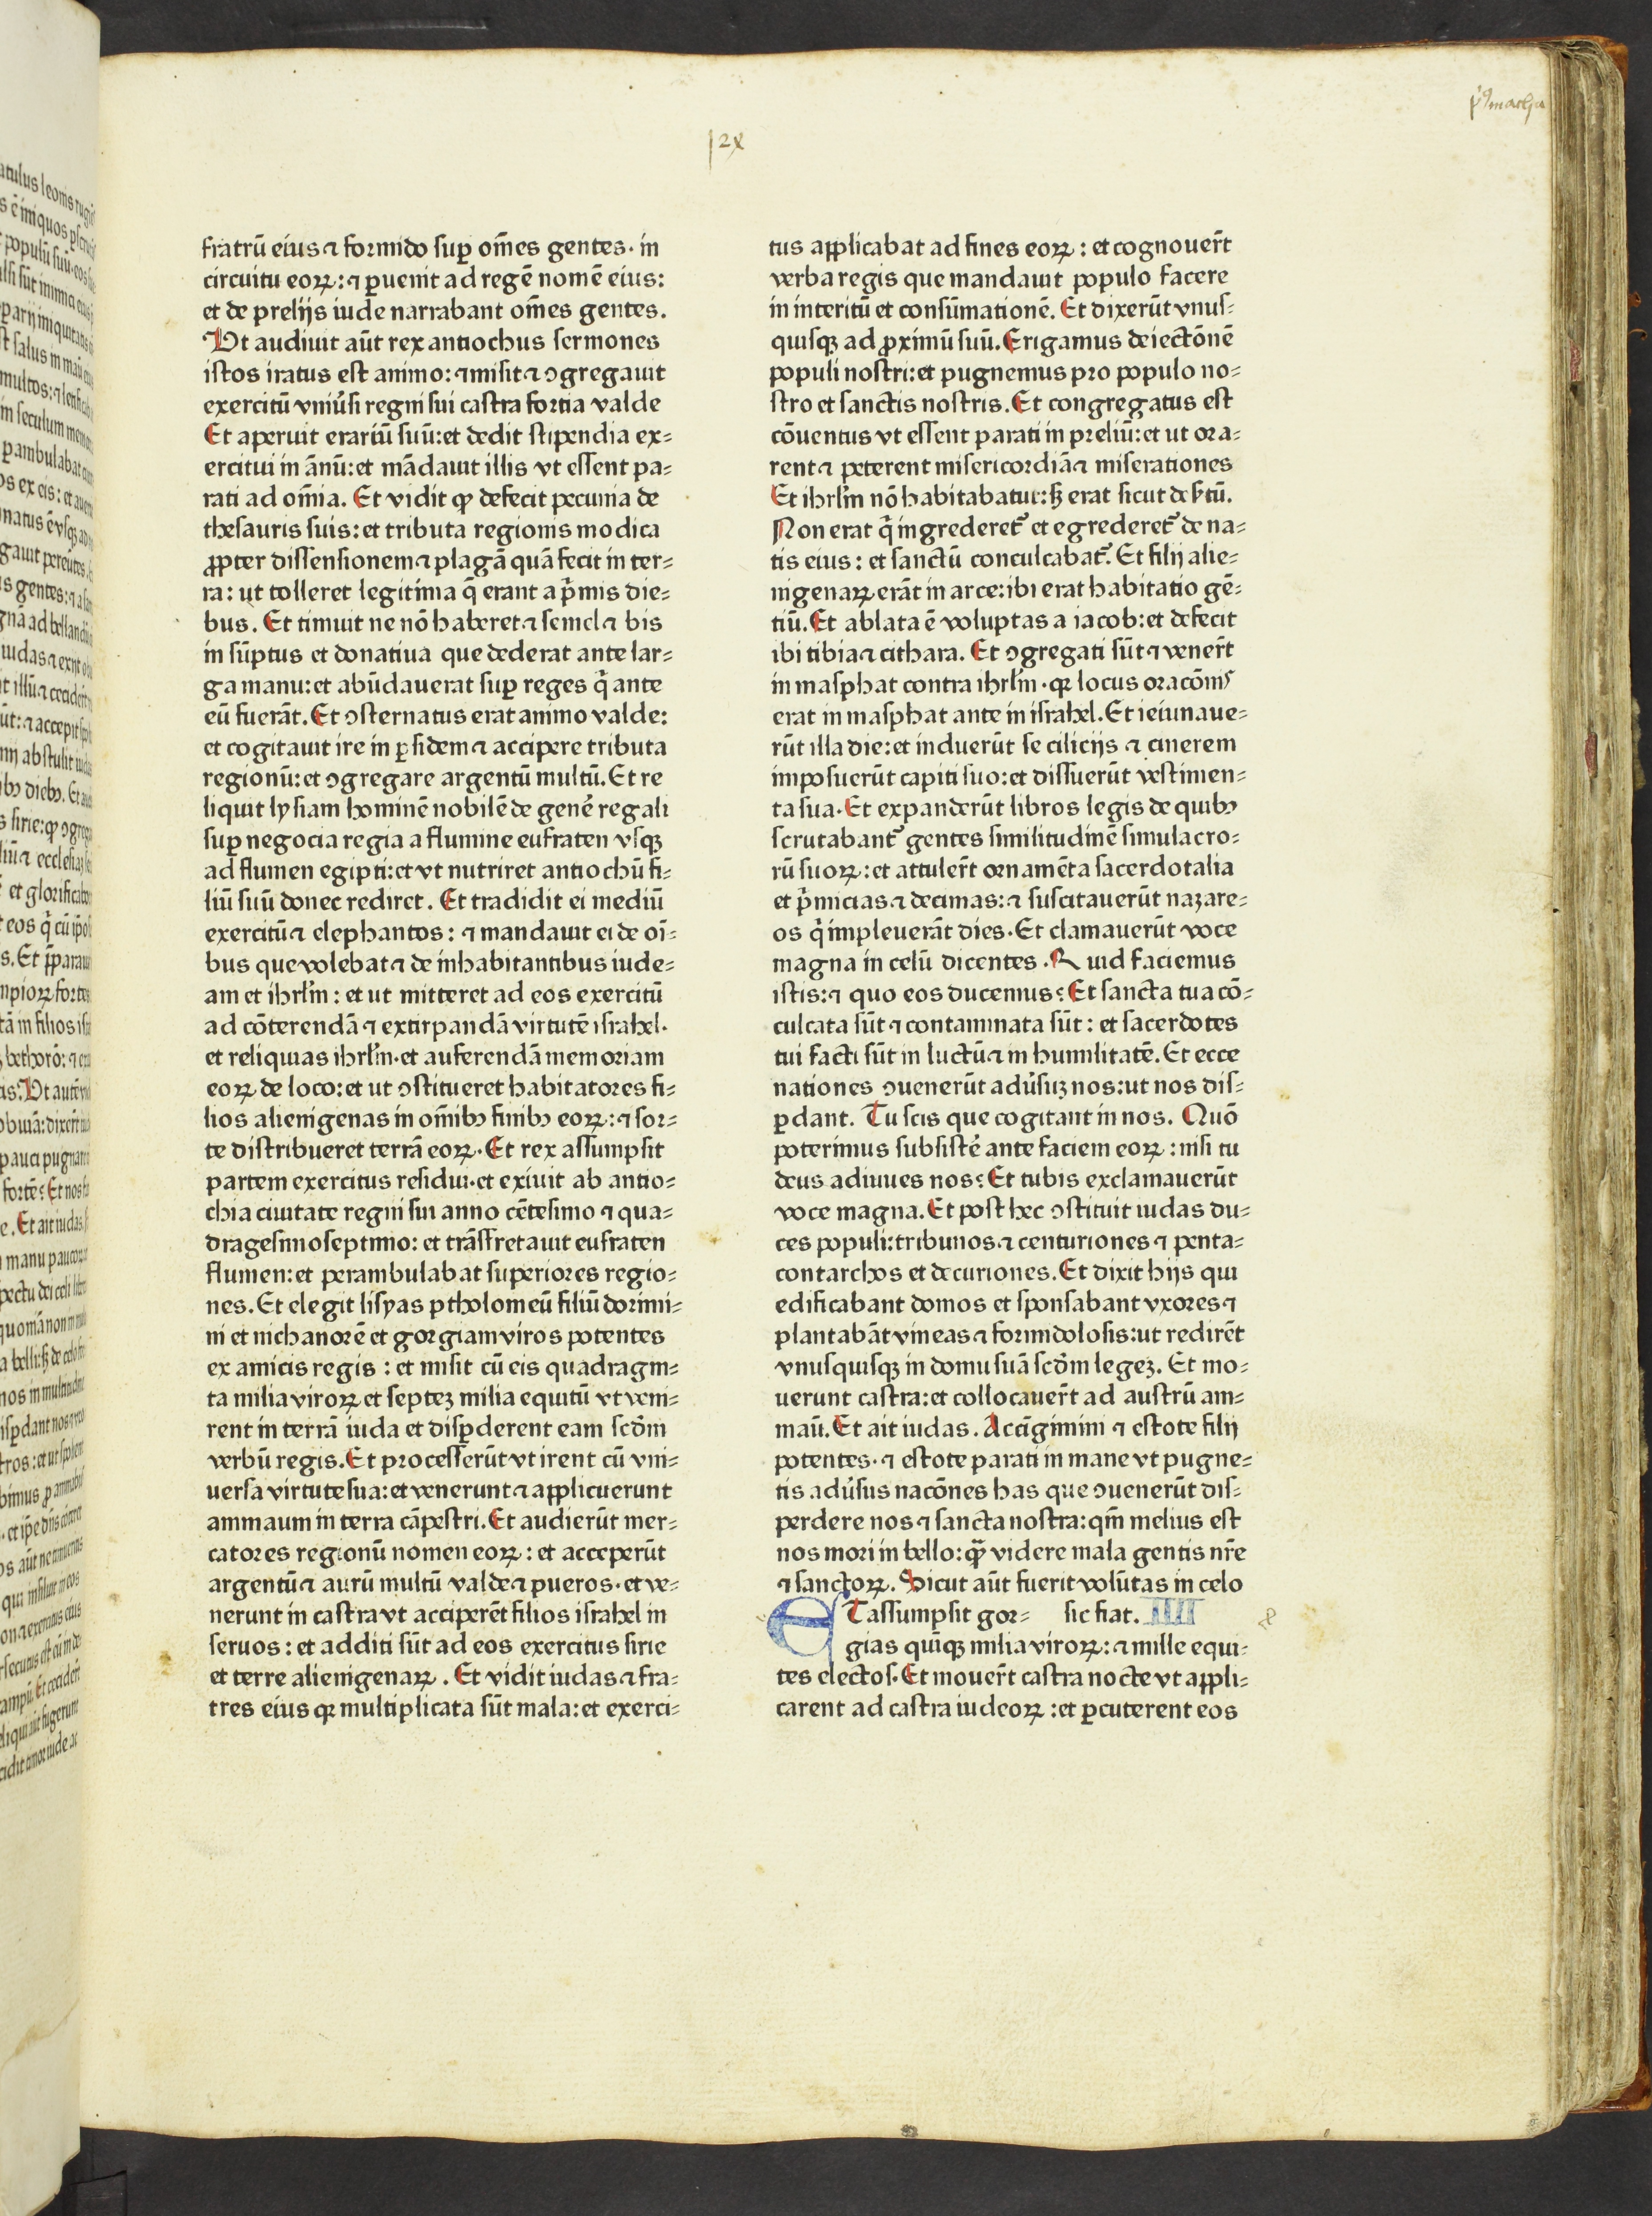 fratrū eius ⁊ formido sup om̄es gentes· in
circuitu eoꝝ: ⁊ ꝑuenit ad regē nomē eius:
et de prelijs iude narrabant om̄es gentes.
Ut audiuit aūt rex antiochus sermones
istos iratus est animo: ⁊ misit ⁊ ↄgregauit
exercitū vniūsi regni sui castra fortia valde
Et aperuit erariū suū: et dedit stipendia ex⸗
ercitui in ānū: et mādauit illis vt essent pa⸗
rati ad om̄ia. Et vidit ꝙ defecit pecunia de
thesauris suis: et tributa regionis modica
ꝓpter dissensionem ⁊ plagā quā fecit in ter⸗
ra: ut tolleret legitima q̄ erant a p̄mis die⸗
bus. Et timuit ne nō haberet ⁊ semel ⁊ bis
in sūptus et donatiua que dederat ante lar⸗
ga manu: et abūdauerat suꝑ reges q̄ ante
eū fuerāt. Et ↄsternatus erat animo valde:
et cogitauit ire in ꝑsidem ⁊ accipere tributa
regionū: et ↄgregare argentū multū. Et re
liquit lysiam hominē nobilē de genē regali
suꝑ negocia regia a flumine eufraten vsqꝫ
ad flumen egipti: et vt nutriret antiochū fi⸗
liū suū donec rediret. Et tradidit ei mediū
exercitū ⁊ elephantos: ⁊ mandauit ei de oī⸗
bus que volebat ⁊ de inhabitantibus iude⸗
am et ihrlm̄: et ut mitteret ad eos exercitū
ad cōterendā ⁊ extirpandā virtutē israhel·
et reliquias ihrlm̄· et auferendā memoriam
eoꝝ de loco: et ut ↄstitueret habitatores fi⸗
lios alienigenas in om̄ibꝫ finibꝫ eoꝝ: ⁊ sor⸗
te distribueret terrā eoꝝ· Et rex assumpsit
partem exercitus residui· et exiuit ab antio⸗
chia ciuitate regni sui anno cētesimo ⁊ qua⸗
dragesimoseptimo: et trāsfretauit eufraten
flumen: et perambulabat superiores regio⸗
nes. Et elegit lisyas ptholomeū filiū dorimi⸗
ni et nichanorē et gorgiam viros potentes
ex amicis regis: et misit cū eis quadragin⸗
ta milia viroꝝ et septeꝫ milia equitū vt veni⸗
rent in terrā iuda et disꝑderent eam scd̄m
verbū regis. Et processerūt vt irent cū vni⸗
uersa virtute sua: et venerunt ⁊ applicuerunt
ammaum in terra cāpestri. Et audierūt mer⸗
catores regionū nomen eoꝝ: et acceperūt
argentū ⁊ aurū multū valde ⁊ pueros· et ve⸗
nerunt in castra vt acciperēt filios israhel in
seruos: et additi sūt ad eos exercitus sirie
et terre alienigenaꝝ. Et vidit iudas ⁊ fra⸗
tres eius qꝛ multiplicata sūt mala: et exerci⸗
tus applicabat ad fines eoꝝ: et cognouer̄t
verba regis que mandauit populo facere
in interitū et consūmationē. Et dixerūt vnus⸗
quisqꝫ ad ꝓximū suū. Erigamus deiectōnē
populi nostri: et pugnemus pro populo no⸗
stro et sanctis nostris. Et congregatus est
cōuentus vt essent parati in preliū: et ut ora⸗
rent ⁊ peterent misericordiā ⁊ miserationes
Et ihrlm̄ nō habitabatur: sꝫ erat sicut desꝑtū.
Non erat q̄ ingrederet᷑ et egrederet᷑ de na⸗
tis eius: et sanctū conculcabat᷑. Et filij alie⸗
nigenaꝝ erāt in arce: ibi erat habitatio gē⸗
tiū. Et ablata ē voluptas a iacob: et defecit
ibi tibia ⁊ cithara. Et ↄgregati sūt ⁊ vener̄t
in masphat contra ihrlm̄· qꝛ locus oracōnis
erat in masphat ante in israhel. Et ieiunaue⸗
rūt illa die: et induerūt se cilicijs ⁊ cinerem
imposuerūt capiti suo: et dissuerūt vestimen⸗
ta sua· Et expanderūt libros legis de quibꝫ
scrutabant᷑ gentes similitudinē simulacro⸗
rū suoꝝ: et attuler̄t ornamēta sacerdotalia
et p̄micias ⁊ decimas: ⁊ suscitauerūt nazare⸗
os q̄ impleuerāt dies· Et clamauerūt voce
magna in celū dicentes. Quid faciemus
istis: ⁊ quo eos ducemus? Et sancta tua cō⸗
culcata sūt ⁊ contaminata sūt: et sacerdotes
tui facti sūt in luctū ⁊ in humilitatē. Et ecce
nationes ↄuenerūt adūsuꝫ nos: ut nos dis⸗
ꝑdant. Tu scis que cogitant in nos. Quō
poterimus subsistē ante faciem eoꝝ: nisi tu
deus adiuues nos? Et tubis exclamauerūt
voce magna. Et post hec ↄstituit iudas du⸗
ces populi: tribunos ⁊ centuriones ⁊ penta⸗
contarchos et decuriones. Et dixit hijs qui
edificabant domos et sponsabant vxores ⁊
plantabāt vineas ⁊ formidolosis: ut redirēt
vnusquisqꝫ in domu suā scd̄m legeꝫ. Et mo⸗
uerunt castra: et collocauer̄t ad austrū am⸗
maū. Et ait iudas. Accīgimini ⁊ estote filij
potentes· ⁊ estote parati in mane vt pugne⸗
tis adūsus nacōnes has que ↄuenerūt dis⸗
perdere nos ⁊ sancta nostra: qm̄ melius est
nos mori in bello: qꝙ̄ videre mala gentis nr̄e
⁊ sanctoꝝ. Sicut aūt fuerit volūtas in celo
ET assumpsit gor⸗ sic fiat. IIII
gias quīqꝫ milia viroꝝ: ⁊ mille equi⸗
tes electos. Et mouer̄t castra nocte vt appli⸗
carent ad castra iudeoꝝ: et ꝑcuterent eos